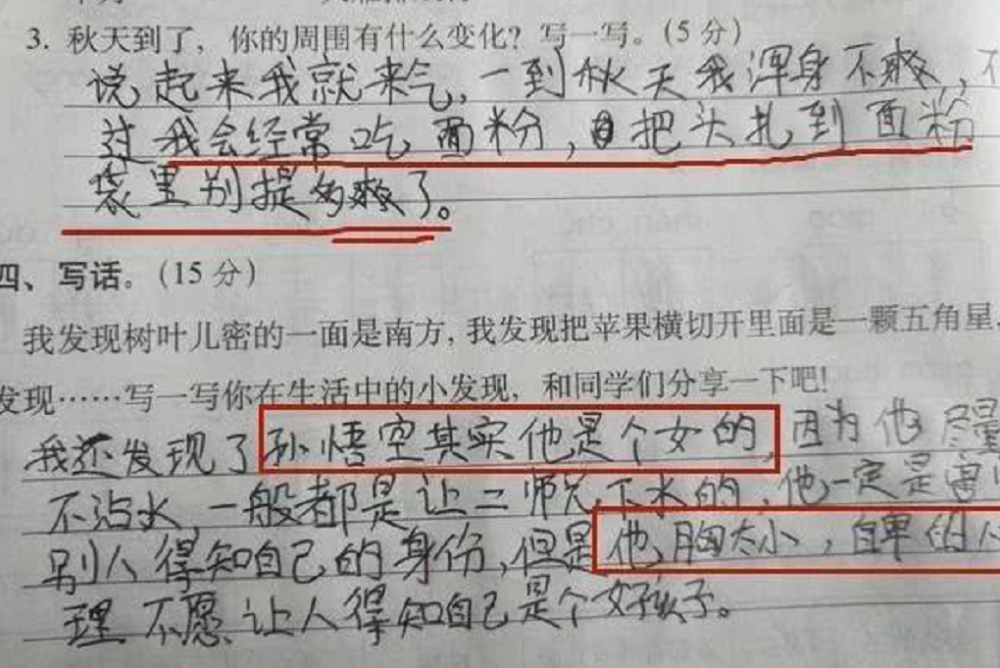 3. 秋天到了，你的周围有什么变化？写一写。(5分)
说起来我就来气，一到秋天我浑身不爽，不
过我会经常吃面粉，把头扎到面粉
袋里别提多爽了。
四、写话。(15分)
我发现树叶儿密的一面是南方，我发现把苹果横切开里面是一颗五角星，
发现……写一写你在生活中的小发现，和同学们分享一下吧！
我还发现了孙悟空其实他是个女的，因为他尽量
不沾水，一般都是让二师兄下水的，他一定是害怕
别人得知自己的身份，但是他胸太小，自卑的心
理不愿让人得知自己是个女孩子。